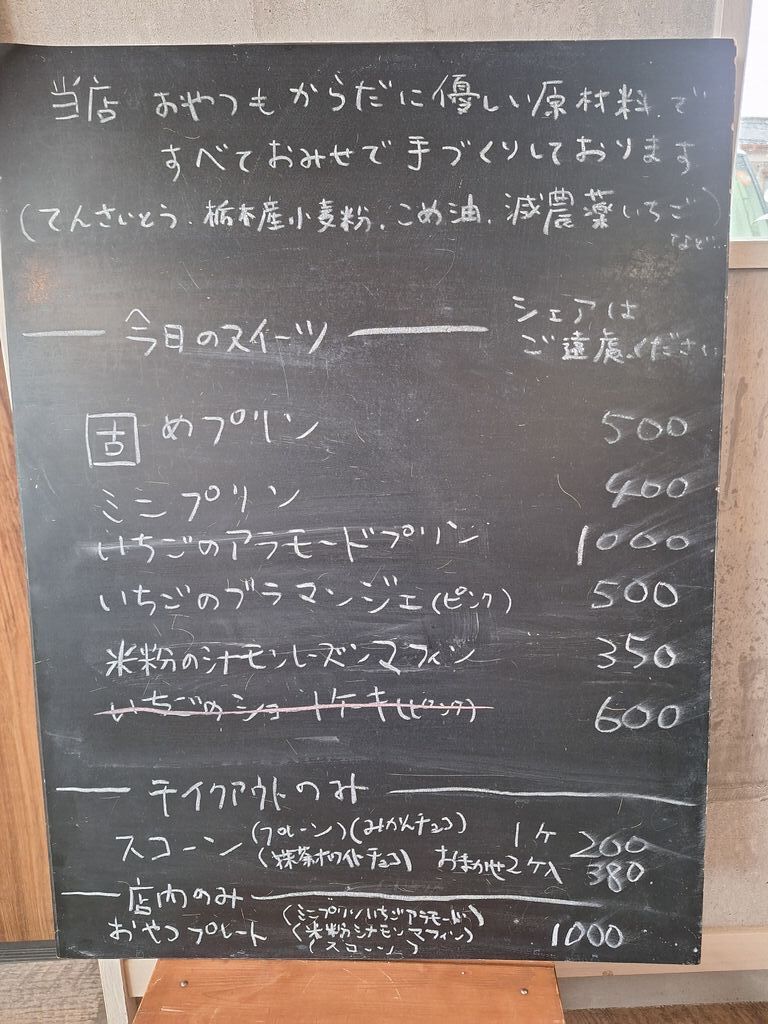 当店 おやつもからだに優しい原材料で
すべておみせで手づくりしております
(てんさいとう、栃木産小麦粉、こめ油、減農薬いちご)
など…
今日のスイーツ
シェアは
ご遠慮ください
固めプリン 500
ミニプリン 400
いちごのアラモードプリン 1000
いちごのブラマンジェ(ピンク) 500
米粉のシナモンレーズンマフィン 350
いちごのショートケーキ(ピンク) 600
テイクアウトのみ
スコーン (プレーン)(みかんチョコ) 1ケ 260
(抹茶ホワイトチョコ) おまかせ2ケ入 380
店内のみ
おやつプレート (ミニプリンいちごアラモード) 1000
(米粉シナモンマフィン)
(スコーン)